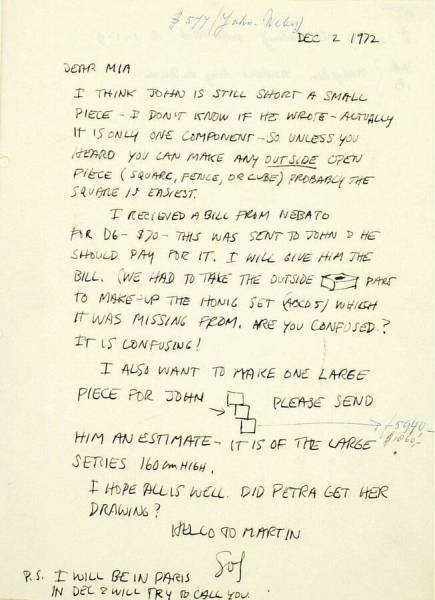 $577 (John Weber)
DEC 2 1972
DEAR MIA
I THINK JOHN IS STILL SHORT A SMALL
PIECE - I DON'T KNOW IF HE WROTE - ACTUALLY
IT IS ONLY ONE COMPONENT - SO UNLESS YOU
HEARD YOU CAN MAKE ANY OUTSIDE OPEN
PIECE (SQUARE, FENCE, OR CUBE) PROBABLY THE
SQUARE IS EASIEST.
I RECIEVED A BILL FROM NEBATO
FOR D6 - $70 - THIS WAS SENT TO JOHN & HE
SHOULD PAY FOR IT. I WILL GIVE HIM THE
BILL. (WE HAD TO TAKE THE OUTSIDE PART
TO MAKE-UP THE HONIG SET (ABCD 5) WHICH
IT WAS MISSING FROM. ARE YOU CONFUSED?
IT IS CONFUSING!
I ALSO WANT TO MAKE ONE LARGE
PIECE FOR JOHN PLEASE SEND
HIM AN ESTIMATE - IT IS OF THE LARGE
SERIES 160 cm HIGH.
I HOPE ALL IS WELL. DID PETRA GET HER
DRAWING?
HELLO TO MARTIN
Sol
P.S. I WILL BE IN PARIS
IN DEC & WILL TRY TO CALL YOU.